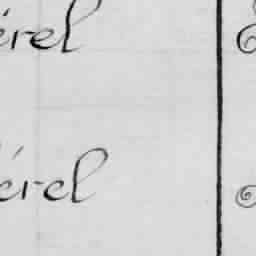 érel
érel